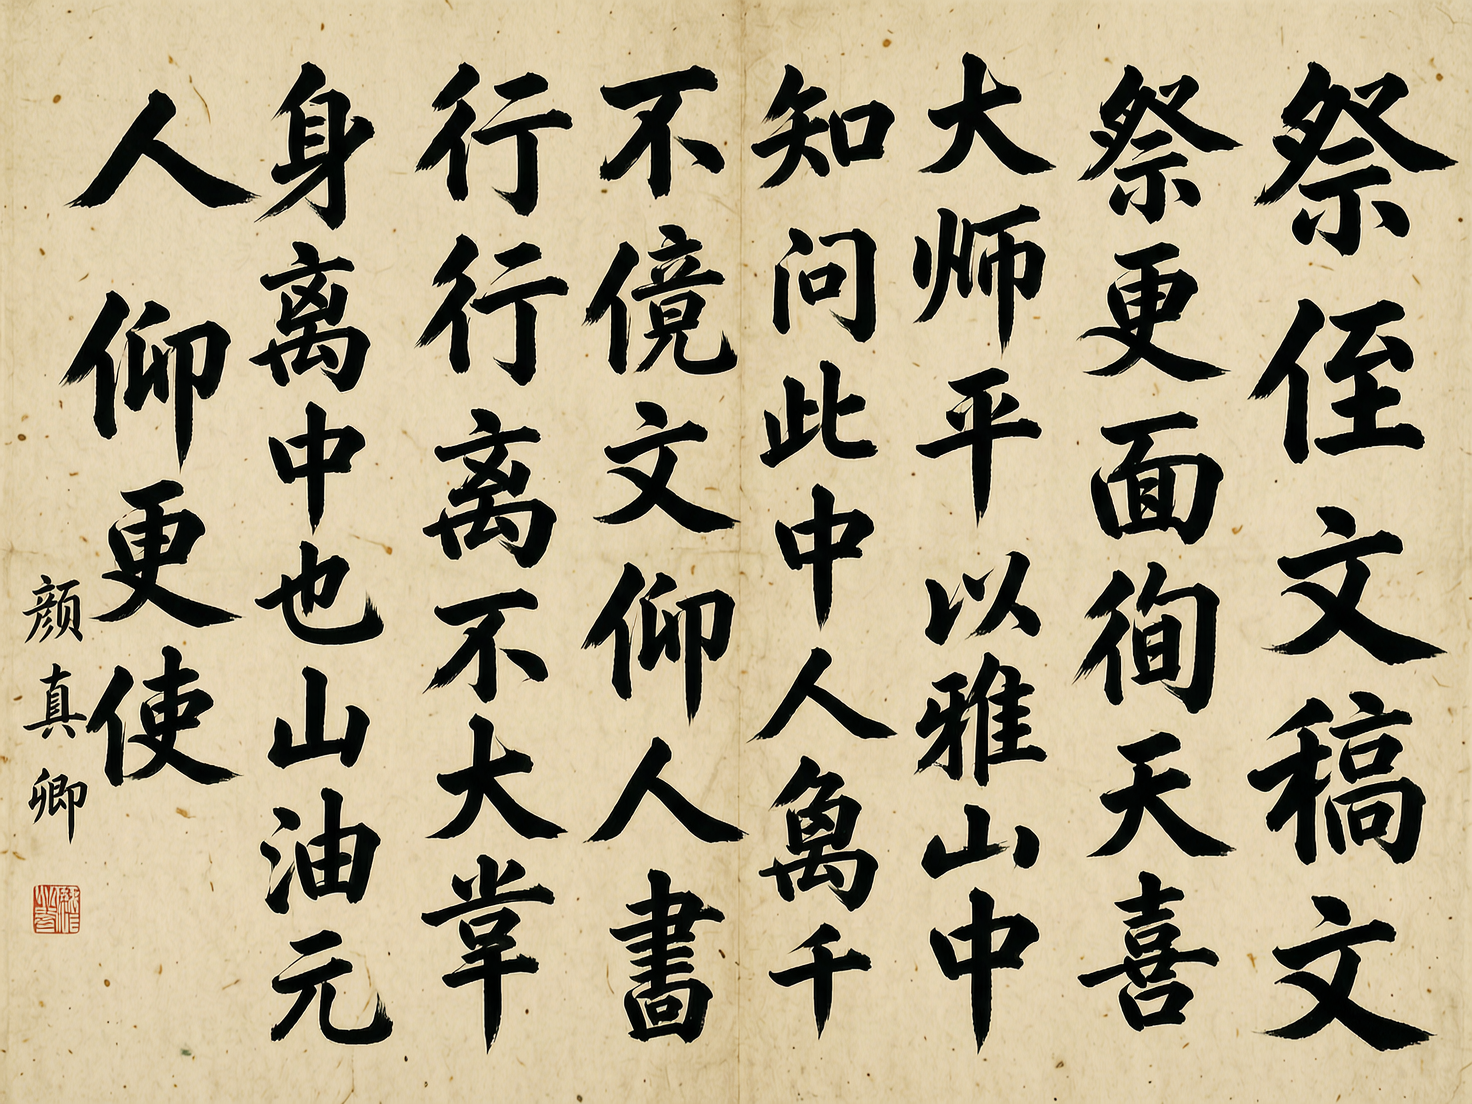 祭侄文稿文
祭更面徇天喜
大师平以雅山中
知问此中人千
不傹文仰人畫
行行离不大
身离中也山油元
人仰更使
颜真卿